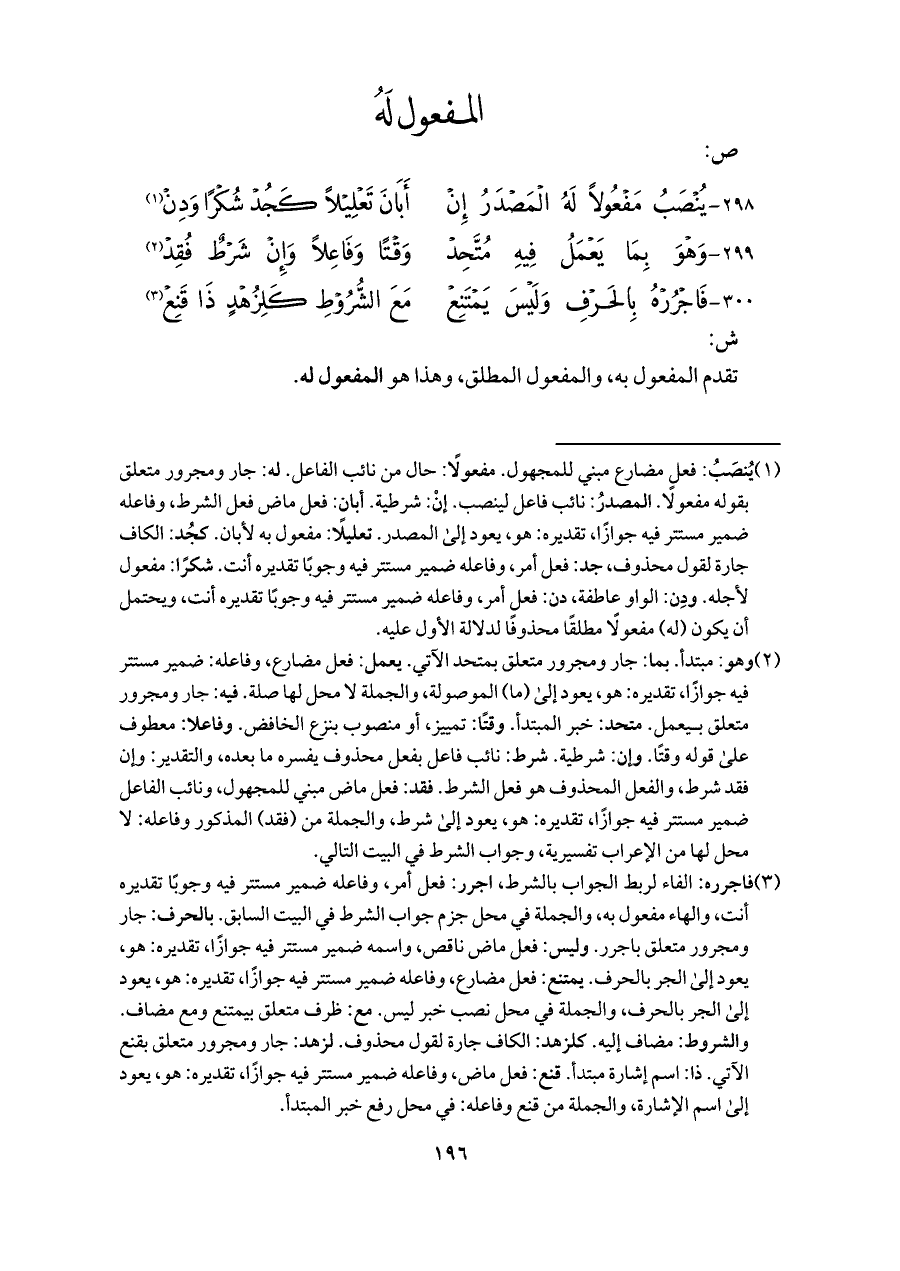 المفعول لَهُ
ص:
٢٩٨-يُنْصَبُ مَفْعُولاً لَهُ الْمَصْدَرُ إِنْ أَبَانَ تَعْلِيْلاً كَجُدْ شُكْرًا وَدِنْ(١)
٢٩٩-وَهْوَ بِمَا يَعْمَلُ فِيهِ مُتَّحِدْ وَقْتًا وَفَاعِلاً وَإِنْ شَرْطٌ فُقِدْ(٢)
٣٠٠-فَاجْرُرْهُ بِالحَرْفِ وَلَيْسَ يَمْتَنِعْ مَعَ الشُّرُوْطِ كَلِزُهْدٍ ذَا قَنِعْ(٣)
ش:
تقدم المفعول به، والمفعول المطلق، وهذا هو المفعول له.
(١)يُنصَبُ: فعل مضارع مبني للمجهول. مفعولًا: حال من نائب الفاعل. له: جار ومجرور متعلق
بقوله مفعولًا. المصدرُ: نائب فاعل لينصب. إنْ: شرطية. أبان: فعل ماض فعل الشرط، وفاعله
ضمير مستتر فيه جوازًا، تقديره: هو، يعود إلىٰ المصدر. تعليلًا: مفعول به لأبان. كجُد: الكاف
جارة لقول محذوف، جد: فعل أمر، وفاعله ضمير مستتر فيه وجوبًا تقديره أنت. شكرًا: مفعول
لأجله. ودِن: الواو عاطفة، دن: فعل أمر، وفاعله ضمير مستتر فيه وجوبًا تقديره أنت، ويحتمل
أن يكون (له) مفعولًا مطلقًا محذوفًا لدلالة الأول عليه.
(٢)وهو: مبتدأ. بما: جار ومجرور متعلق بمتحد الآتي. يعمل: فعل مضارع، وفاعله: ضمير مستتر
فيه جوازًا، تقديره: هو، يعود إلىٰ (ما) الموصولة، والجملة لا محل لها صلة. فيه: جار ومجرور
متعلق بـيعمل. متحد: خبر المبتدأ. وقتًا: تمييز، أو منصوب بنزع الخافض. وفاعلا: معطوف
علىٰ قوله وقتًا. وإن: شرطية. شرط: نائب فاعل بفعل محذوف يفسره ما بعده، والتقدير: وإن
فقد شرط، والفعل المحذوف هو فعل الشرط. فقد: فعل ماض مبني للمجهول، ونائب الفاعل
ضمير مستتر فيه جوازًا، تقديره: هو، يعود إلىٰ شرط، والجملة من (فقد) المذكور وفاعله: لا
محل لها من الإعراب تفسيرية، وجواب الشرط في البيت التالي.
(٣)فاجرره: الفاء لربط الجواب بالشرط، اجرر: فعل أمر، وفاعله ضمير مستتر فيه وجوبًا تقديره
أنت، والهاء مفعول به، والجملة في محل جزم جواب الشرط في البيت السابق. بالحرف: جار
ومجرور متعلق باجرر. وليس: فعل ماض ناقص، واسمه ضمير مستتر فيه جوازًا، تقديره: هو،
يعود إلىٰ الجر بالحرف. يمتنع: فعل مضارع، وفاعله ضمير مستتر فيه جوازًا، تقديره: هو، يعود
إلىٰ الجر بالحرف، والجملة في محل نصب خبر ليس. مع: ظرف متعلق بيمتنع ومع مضاف.
والشروط: مضاف إليه. كلزهد: الكاف جارة لقول محذوف. لزهد: جار ومجرور متعلق بقنع
الآتي. ذا: اسم إشارة مبتدأ. قنع: فعل ماض، وفاعله ضمير مستتر فيه جوازًا، تقديره: هو، يعود
إلىٰ اسم الإشارة، والجملة من قنع وفاعله: في محل رفع خبر المبتدأ.
١٩٦